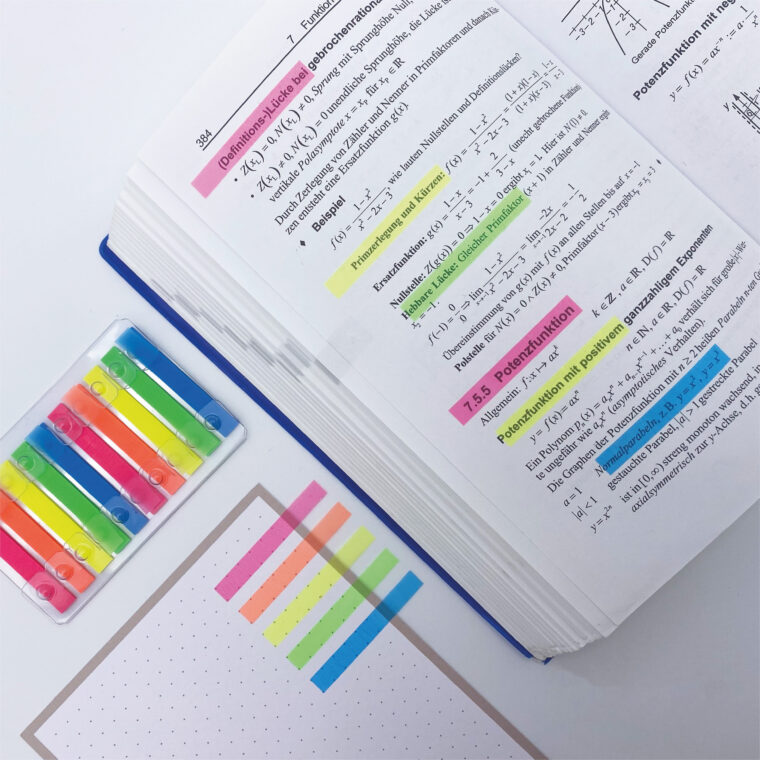 384
7 Funktion
(Definitions-)Lücke bei gebrochenrationa
• Z(x_L) = 0, N(x_L) ≠ 0, Sprung mit Sprunghöhe Null,
• Z(x_L) ≠ 0, N(x_L) = 0 unendliche Sprunghöhe, die Lücke ist
vertikale Polasymptote x = x_p für x_p ∈ ℝ
Durch Zerlegung von Zähler und Nenner in Primfaktoren und danach Kü
zen entsteht eine Ersatzfunktion g(x).
♦ Beispiel
f(x) = (1 − x²)/(x² − 2x − 3) wie lauten Nullstellen und Definitionslücken?
Primzerlegung und Kürzen: f(x) = (1 − x²)/(x² − 2x − 3) = (1 + x)(1 − x)/(1 + x)(x − 3) =
Ersatzfunktion: g(x) = (1 − x)/(x − 3) = −1 + 2/(3 − x) (unecht gebrochene Funktion)
Nullstelle: Z(g(x)) = 0 ⇒ 1 − x = 0 ergibt x₁ = 1. Hier ist N(1) ≠ 0.
Hebbare Lücke: Gleicher Primfaktor (x + 1) in Zähler und Nenner ergibt
x_L = −1.
f(−1) = 0/0 = lim (1 − x²)/(x² − 2x − 3) = lim −2x/(2x − 2) = 1/2
Übereinstimmung von g(x) mit f(x) an allen Stellen bis auf x = −1
Polstelle für N(x) = 0 ∧ Z(x) ≠ 0, Primfaktor (x − 3) ergibt x_p = x_2 = 3 ♦
7.5.5 Potenzfunktion
Allgemein: f: x ↦ ax^k k ∈ ℤ, a ∈ ℝ, D(f) = ℝ
Potenzfunktion mit positivem ganzzahligem Exponenten
y = f(x) = axⁿ n ∈ ℕ, a ∈ ℝ, D(f) = ℝ
Ein Polynom p_n(x) = a_n xⁿ + a_{n−1} x^{n−1} + ... + a₀ verhält sich für große |x|-We-
te ungefähr wie a_n xⁿ (asymptotisches Verhalten).
Die Graphen der Potenzfunktion mit n ≥ 2 heißen Parabeln n-ten
a = 1 Normalparabeln, z. B. y = x², y = x³
|a| < 1 gestauchte Parabel, |a| > 1 gestreckte Parabel
y = x²ⁿ ist in [0, ∞) streng monoton wachsend, in
axialsymmetrisch zur y-Achse, d.h.
−2
−3
−3 −2
Gerade Potenzfunk
Potenzfunktion mit neg
y = f(x) = ax⁻ⁿ := a ·